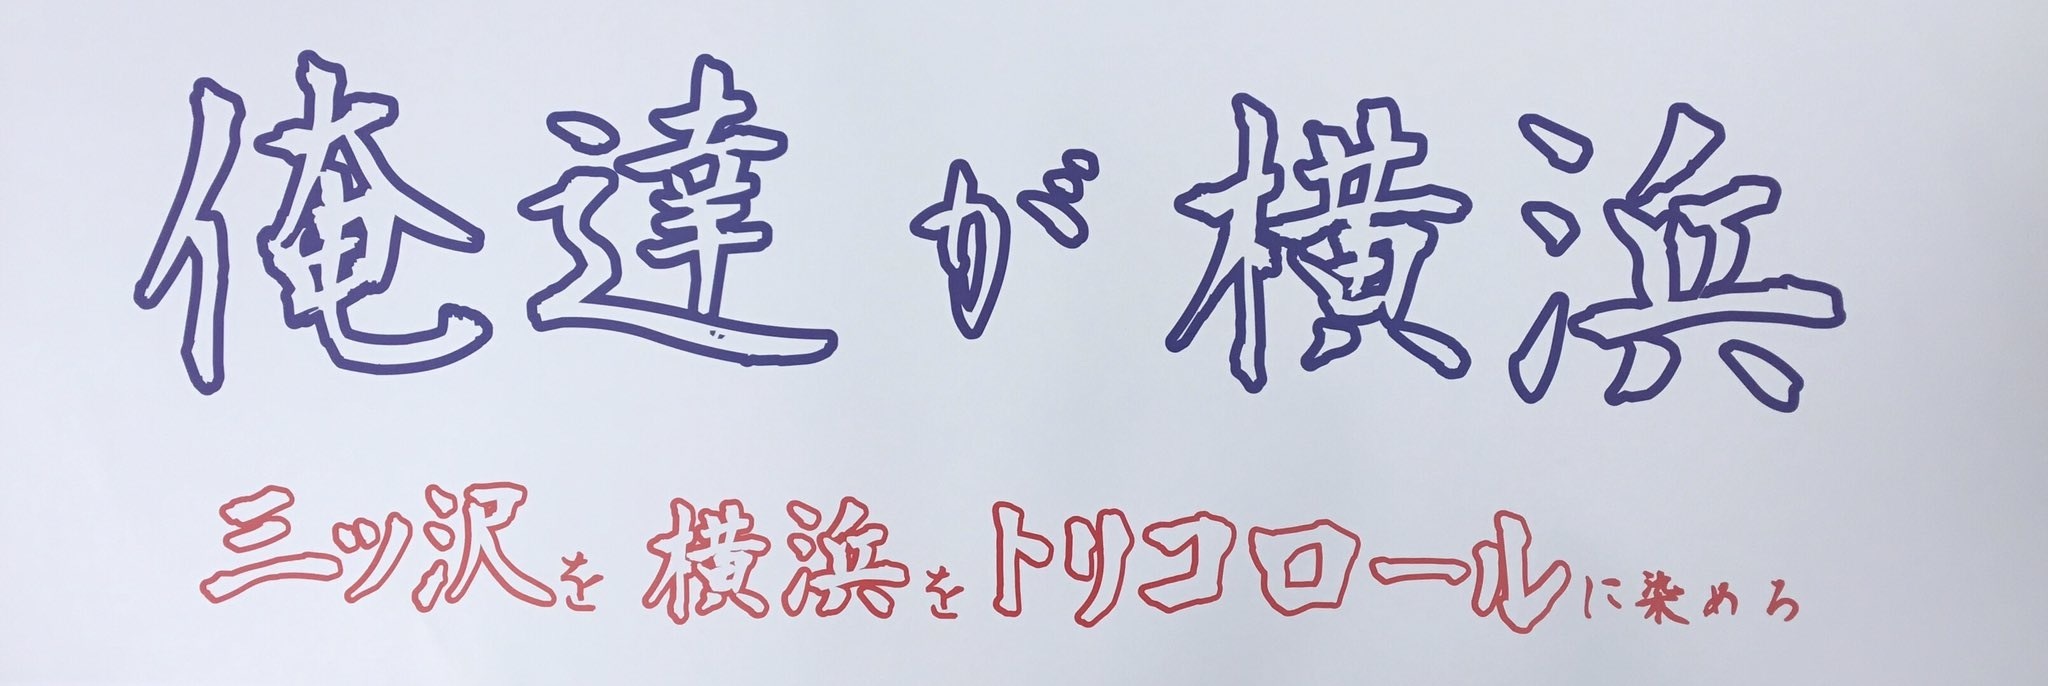 俺達が横浜
三ッ沢を横浜をトリコロールに染めろ